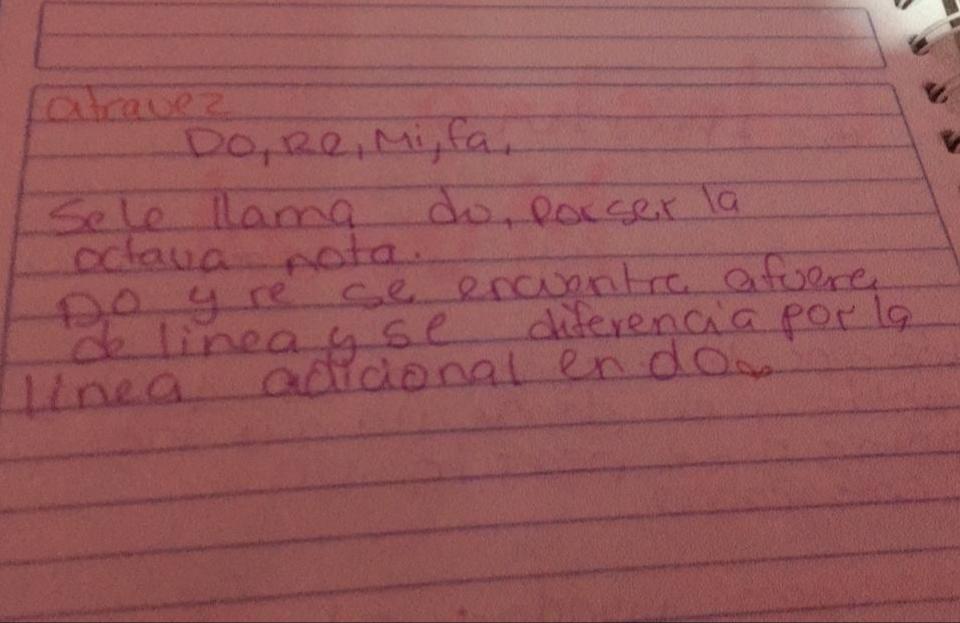 atravez
Do, Re, Mi, fa,
Se le llama do, por ser la
octava nota.
Do y re se encuentra afuera
de linea y se diferencia por la
linea adicional en do